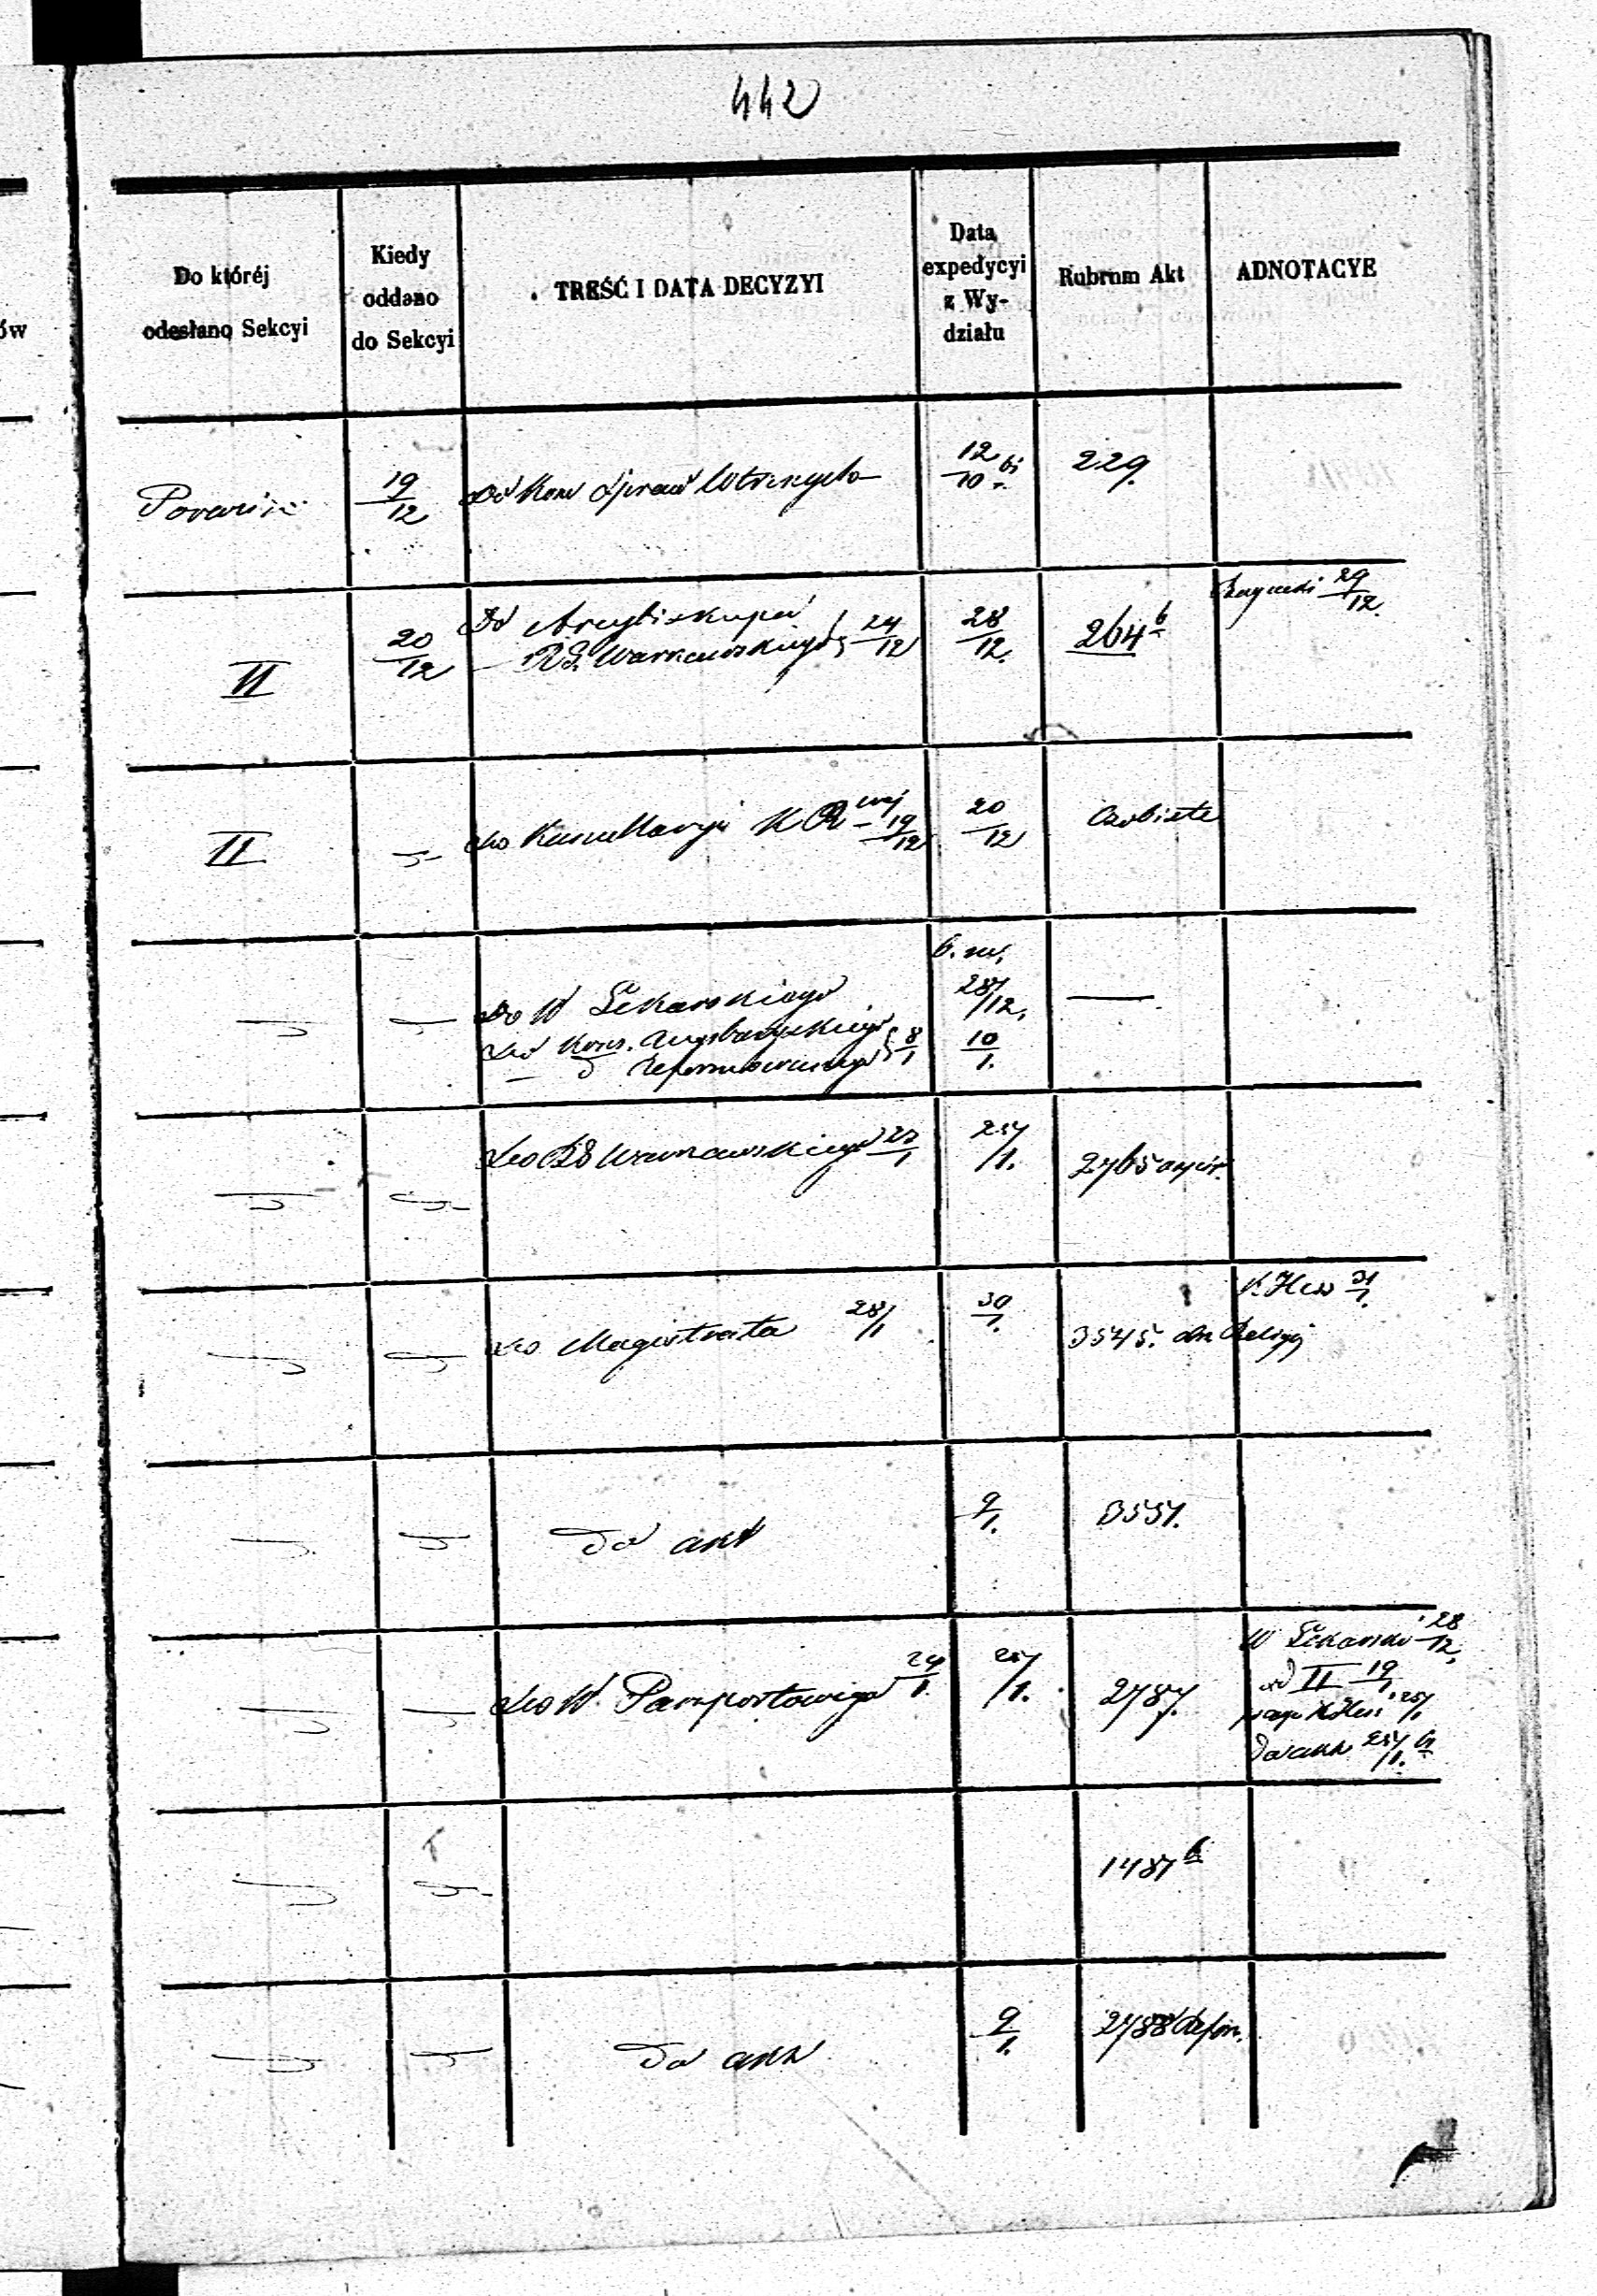 442
Do któréj
odesłano Sekcyi
Kiedy
oddano
do Sekcyi
TREŚĆ I DATA DECYZYI
Data
expedycyi
z Wy-
działu
Rubrum Akt
ADNOTACYE
ów
19/12
Do Kom Spraw
12/10
229.
II
20/12
Do Arcybiskupa
RG Warszawskiego 24/12
28/12.
264 b
29/12.
II
Do Kancellaryi K R 19/12
20/12
Osobiste
Do W Lekarskiego
28/12.
Do Kons. Augsburskiego
Reformowanego 8/1
10/1.
Do RG Warszawskiego
25/1.
2765
Do Magistratu 28/1
30/1.
3545.
K. Hess 31/1.
Do akt
9/1.
3557.
Do W. Paszportowego 24/1.
25/1.
2787.
W Lekarski 28/12.
od II 19/1
Do akt 25/1.
1487 b
Do akt
9/1.
2788